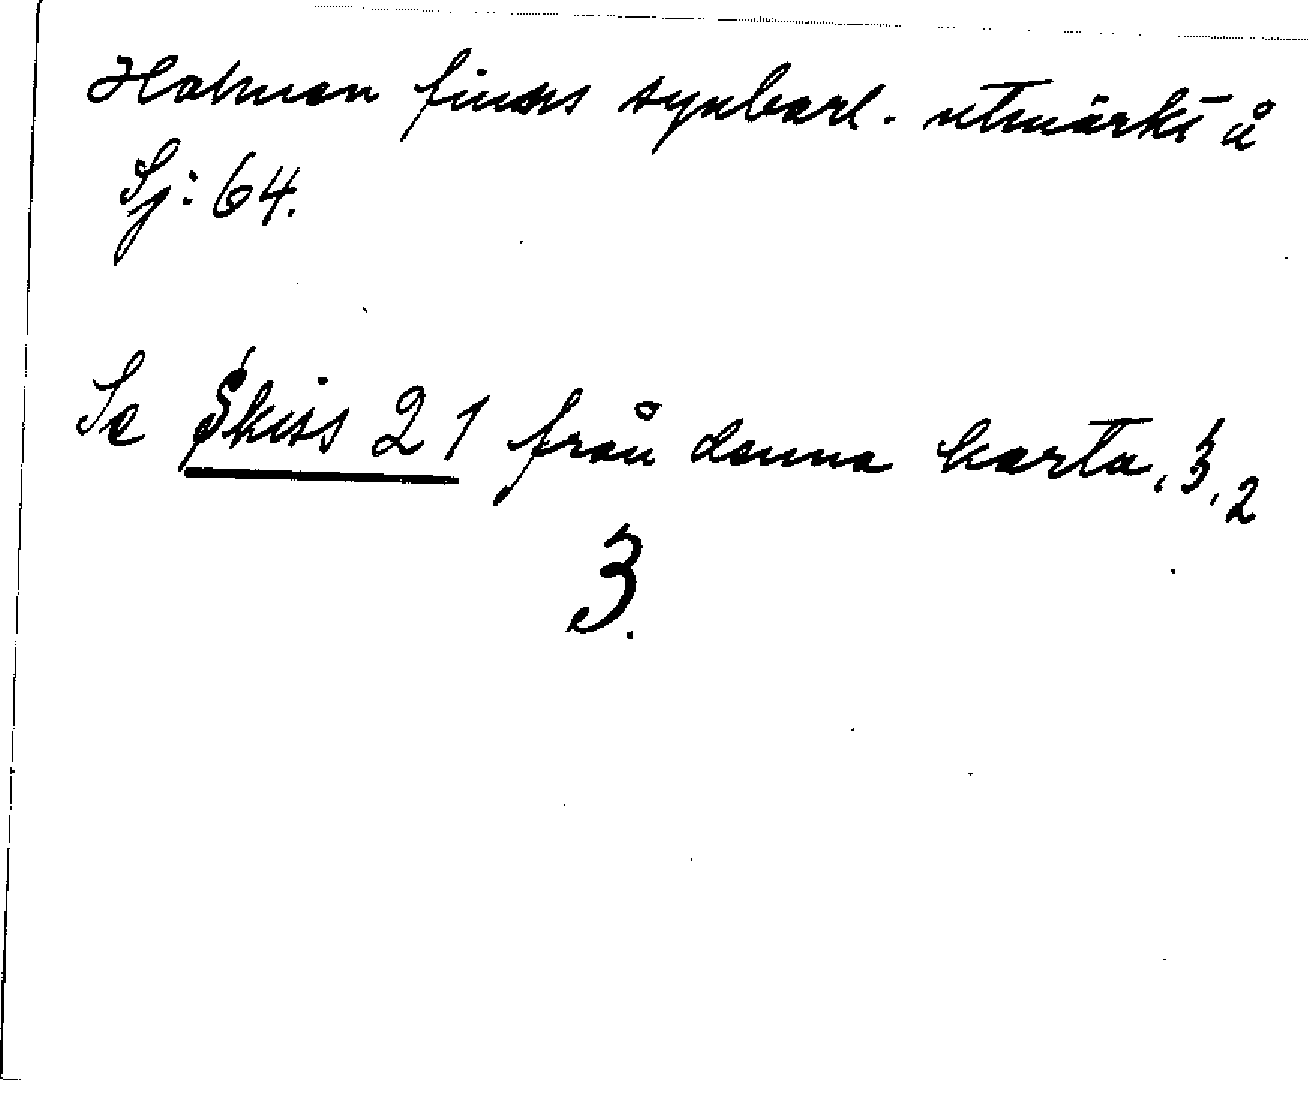 Holmen finnes synbarl. utmärkt å
Sj: 64.
Se Skiss 21 från denna karta, 3, 2
3.